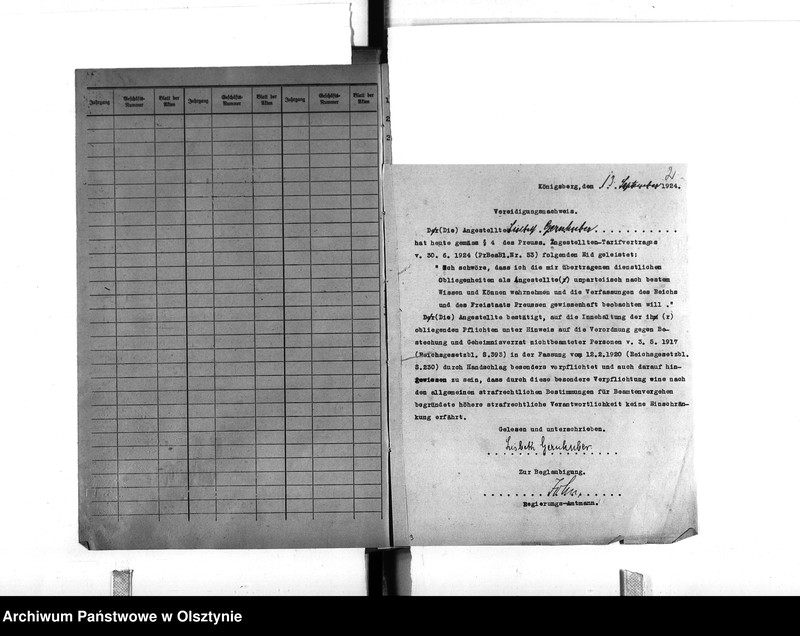 Jahrgang Geschäfts-Nummer Blatt der Akten Jahrgang Geschäfts-Nummer Blatt der Akten Jahrgang Geschäfts-Nummer Blatt der Akten
2
Königsberg, den 13. September 1924.
Vereidigungsnachweis.
Der(Die) Angestellte Lisbeth Gernhuber. . . . . . . . . . .
hat heute gemäss § 4 des Preuss. Angestellten-Tarifvertrags
v. 30. 6. 1924 (PrBesBl.Nr. 53) folgenden Eid geleistet:
" Ich schwöre, dass ich die mir übertragenen dienstlichen
Obliegenheiten als Angestellte(r) unparteiisch nach bestem
Wissen und Können wahrnehmen und die Verfassungen des Reichs
und des Freistaats Preussen gewissenhaft beobachten will ."
Der(Die) Angestellte bestätigt, auf die Innehaltung der ihm (r)
obliegenden Pflichten unter Hinweis auf die Verordnung gegen Be-
stechung und Geheimnisverrat nichtbeamteter Personen v. 3. 5. 1917
(Reichsgesetzbl. S.393) in der Fassung vom 12.2.1920 (Reichsgesetzbl.
S.230) durch Handschlag besonders verpflichtet und auch darauf hin-
gewiesen zu sein, dass durch diese besondere Verpflichtung eine nach
den allgemeinen strafrechtlichen Bestimmungen für Beamtenvergehen
begründete höhere strafrechtliche Verantwortlichkeit keine Einschrän-
kung erfährt.
Gelesen und unterschrieben.
Lisbeth Gernhuber.
Zur Beglaubigung.
Regierungs-Amtmann.
Archiwum Państwowe w Olsztynie